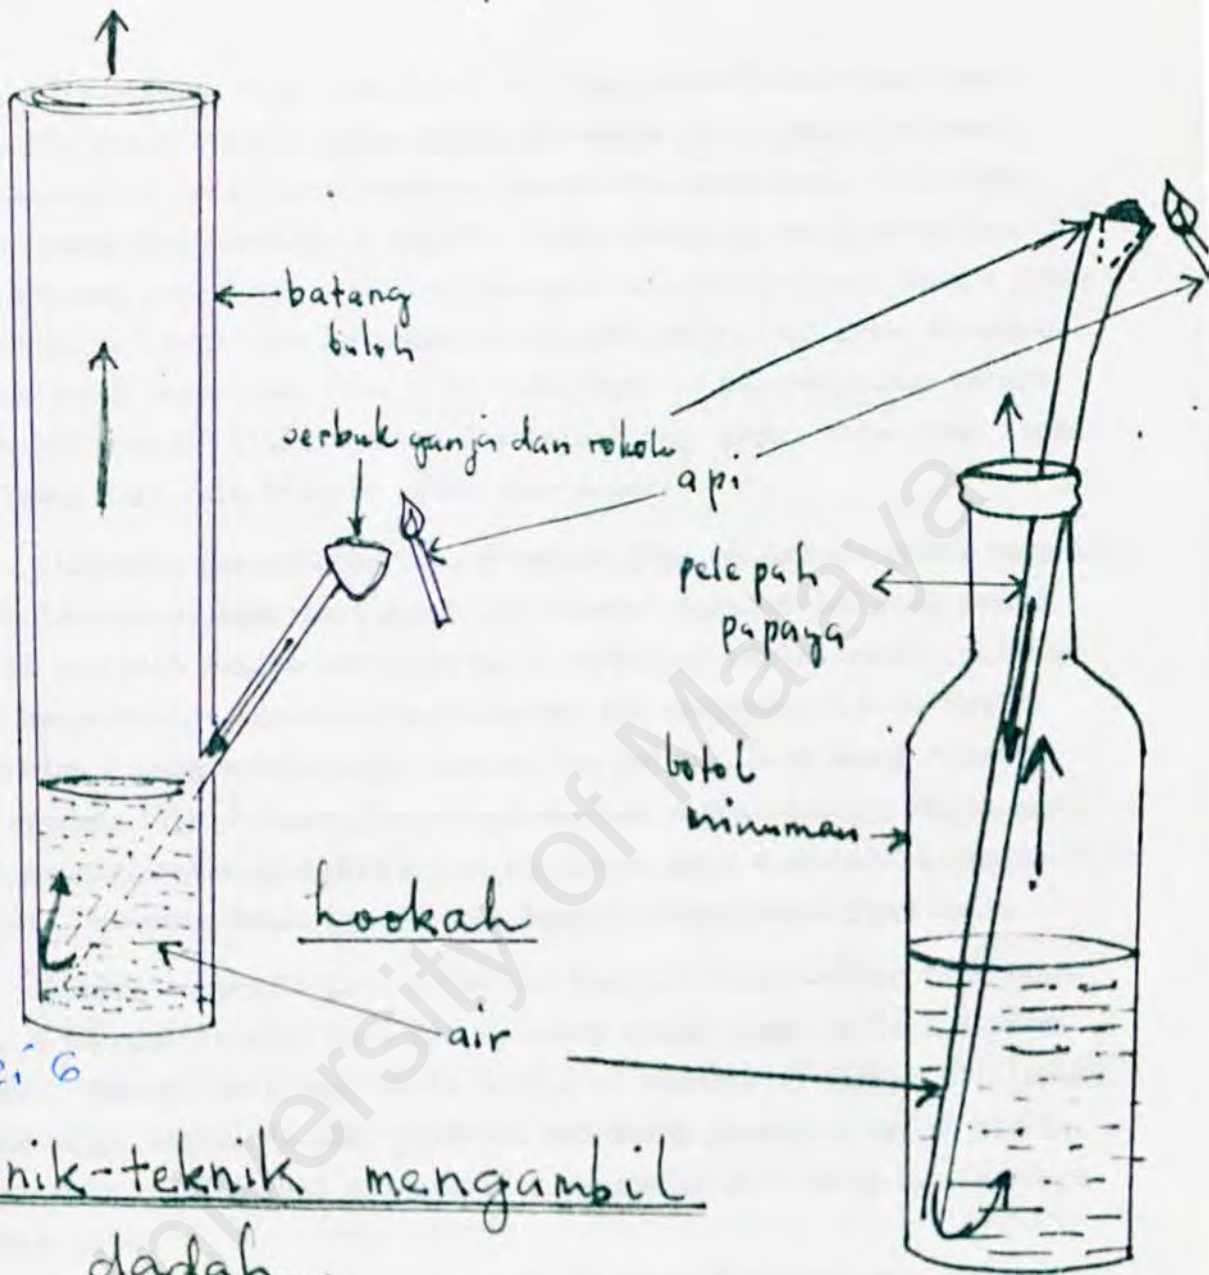 batang
buloh
serbuk ganja dan rokok
api
pelepah
papaya
botol
minuman
hookah
air
6
nik-teknik mengambil
dadah.
University of Malaya